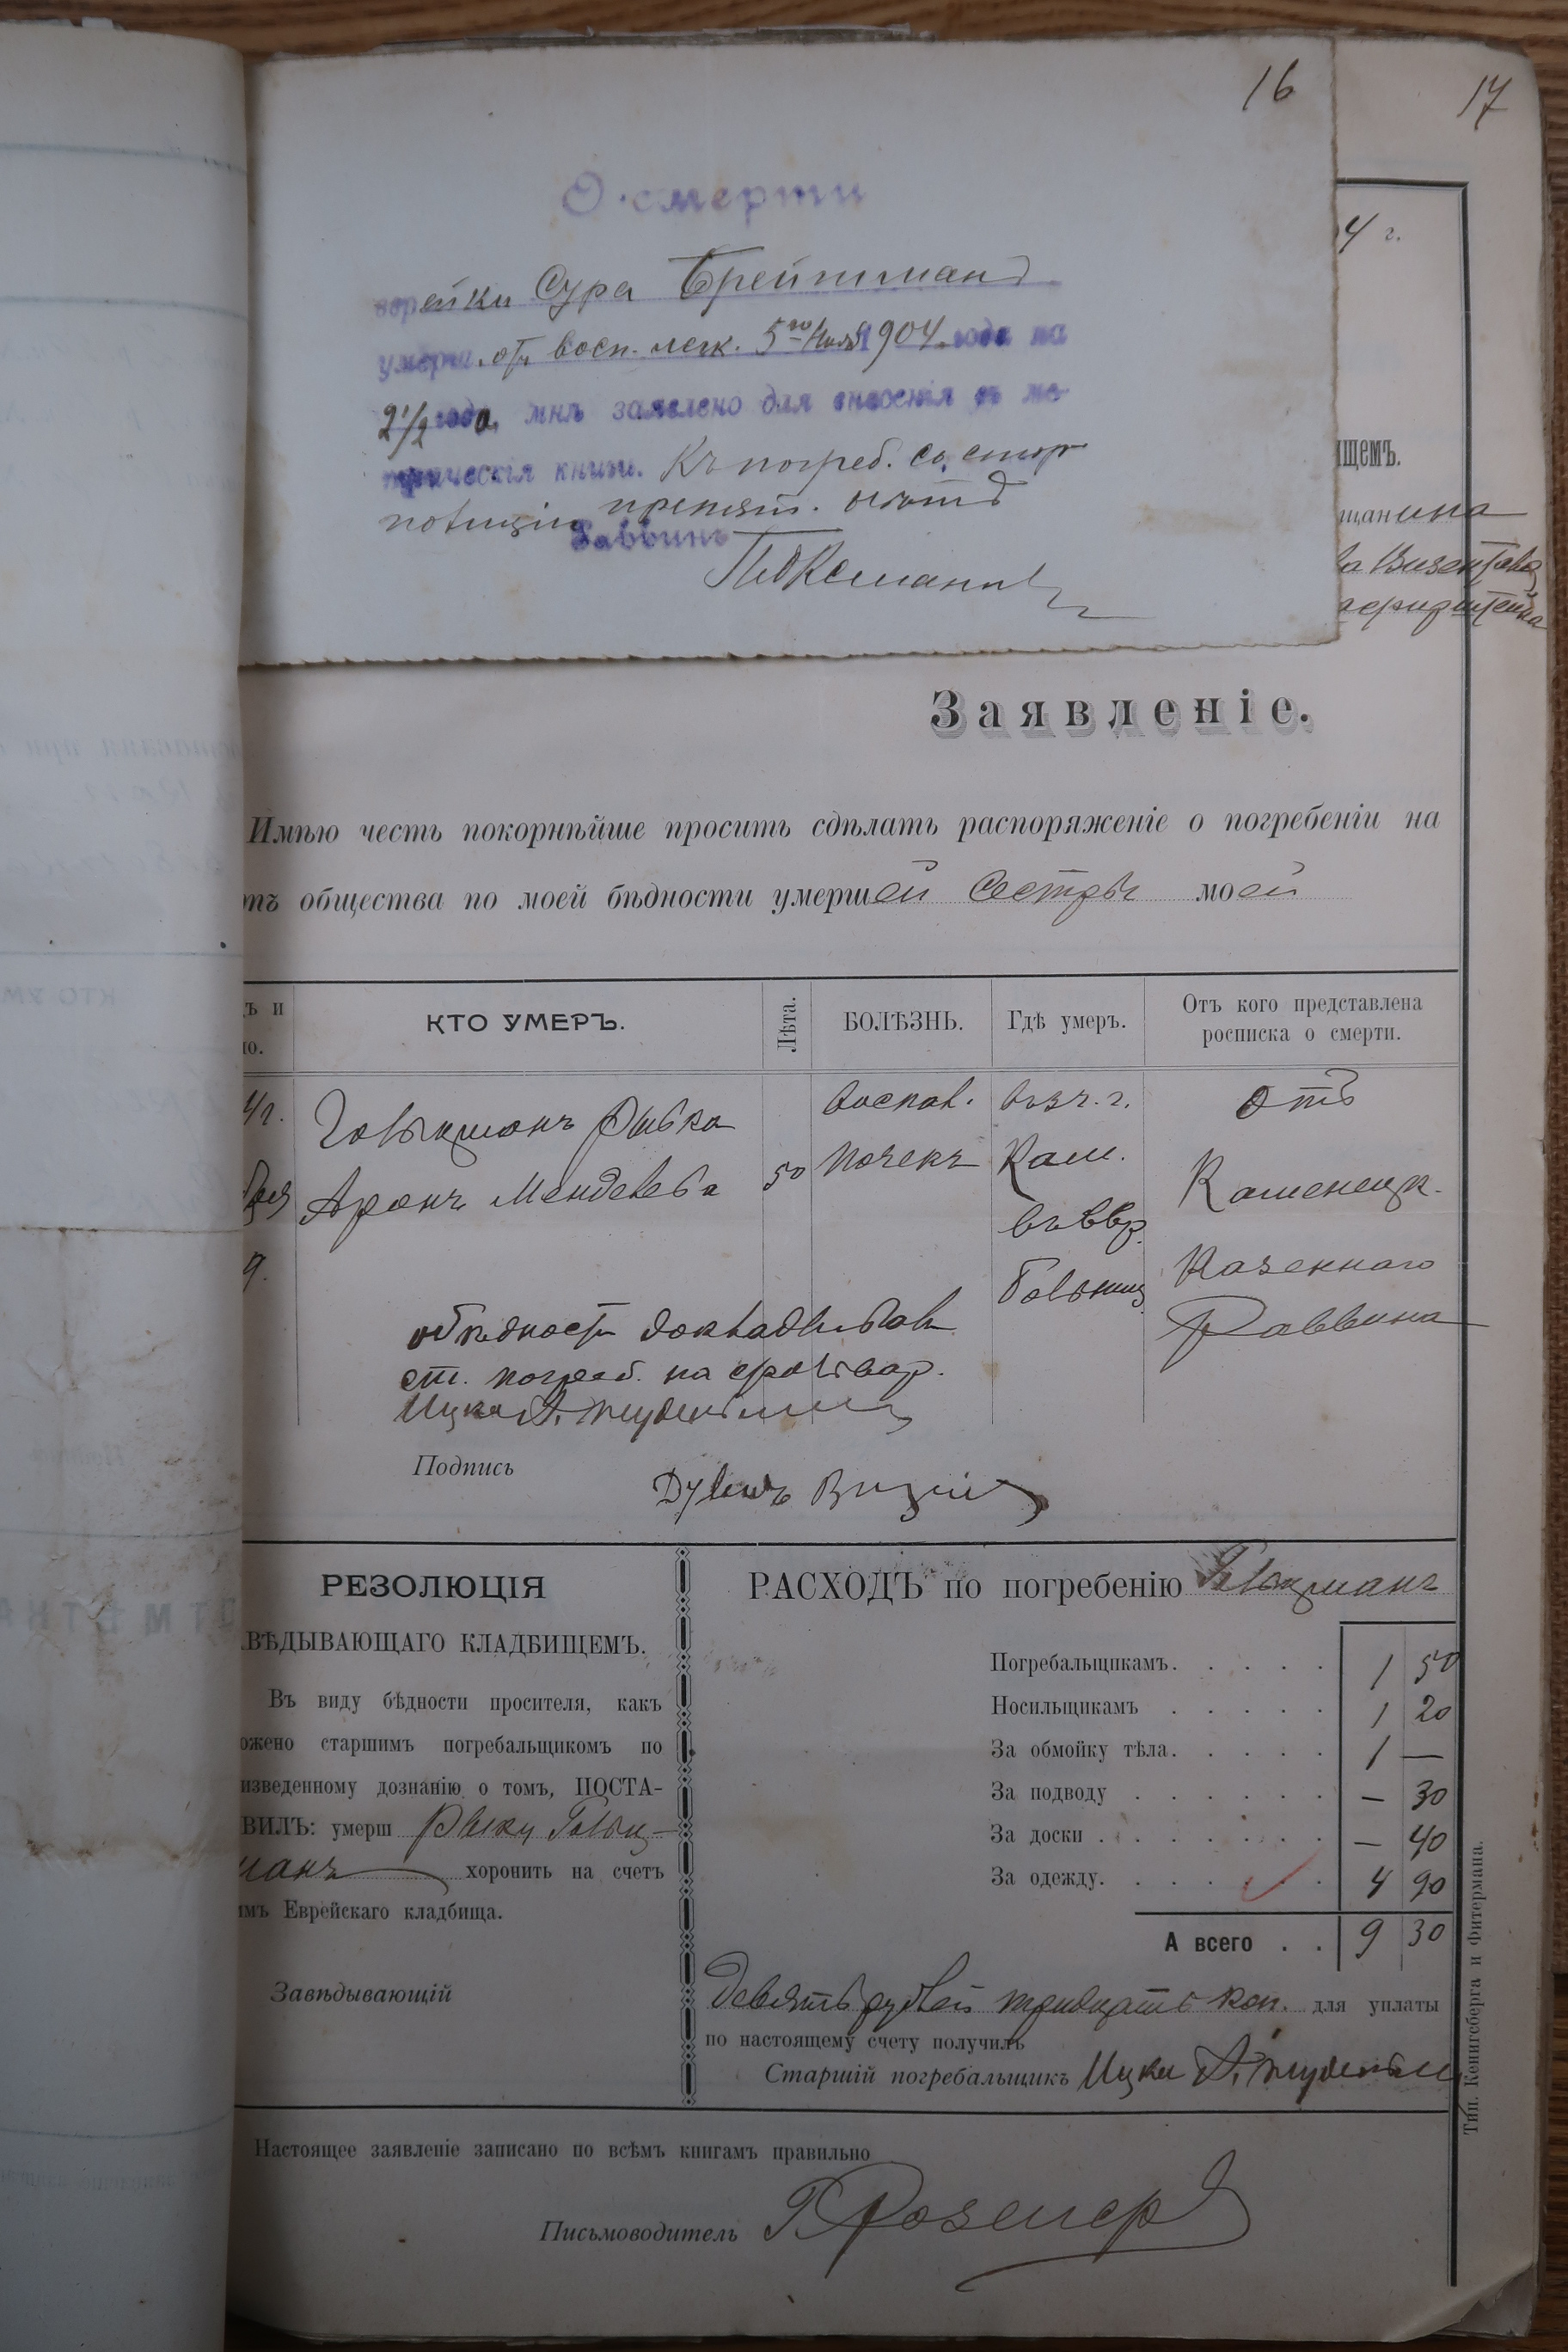 16
17
О смерти
еврейки Сура Брейтманъ
умерш. отъ восп. легк. 5го Ноя 1904 года на
2 1/2 года, мнѣ заявлено для внесенія въ ме-
трическія книги. Къ погреб. со стор
полиціи препят. нѣтъ
Раввинъ
4 г.
ищемъ.
щанина
Заявленіе.
Имѣю честь покорнѣйше просить сдѣлать распоряженіе о погребеніи на
отъ общества по моей бѣдности умершей Сестры моей
ъ и
ло.
КТО УМЕРЪ.
Лѣта.
БОЛѢЗНЬ.
Гдѣ умеръ.
Отъ кого представлена
росписка о смерти.
4/г.
Гольцманъ Рывка
Аронъ Менделева
50
воспал.
почекъ
въ г.
Кам.
въ Евр.
больниц
Отъ
Каменецк.
Казеннаго
Раввина
о бѣдности докладывал
ст. погреб. на
Ицко А.
Подпись
РЕЗОЛЮЦІЯ
ВѢДЫВАЮЩАГО КЛАДБИЩЕМЪ.
Въ виду бѣдности просителя, какъ
ожено старшимъ погребальщикомъ по
изведенному дознанію о томъ, ПОСТА-
ВИЛЪ: умерш Рывку Гольц-
манъ хоронить на счетъ
имъ Еврейскаго кладбища.
Завѣдывающій
РАСХОДЪ по погребенію Гольцманъ
Погребальщикамъ. 1 50
Носильщикамъ 1 20
За обмойку тѣла. 1 —
За подводу — 30
За доски — 40
За одежду. 4 90
А всего 9 30
Девять рублей тридцать коп. для уплаты
по настоящему счету получилъ
Старшій погребальщикъ Ицко А.
Настоящее заявленіе записано по всѣмъ книгамъ правильно
Письмоводитель Г Розенер
Тип. Кенигсберга и Фитермана.